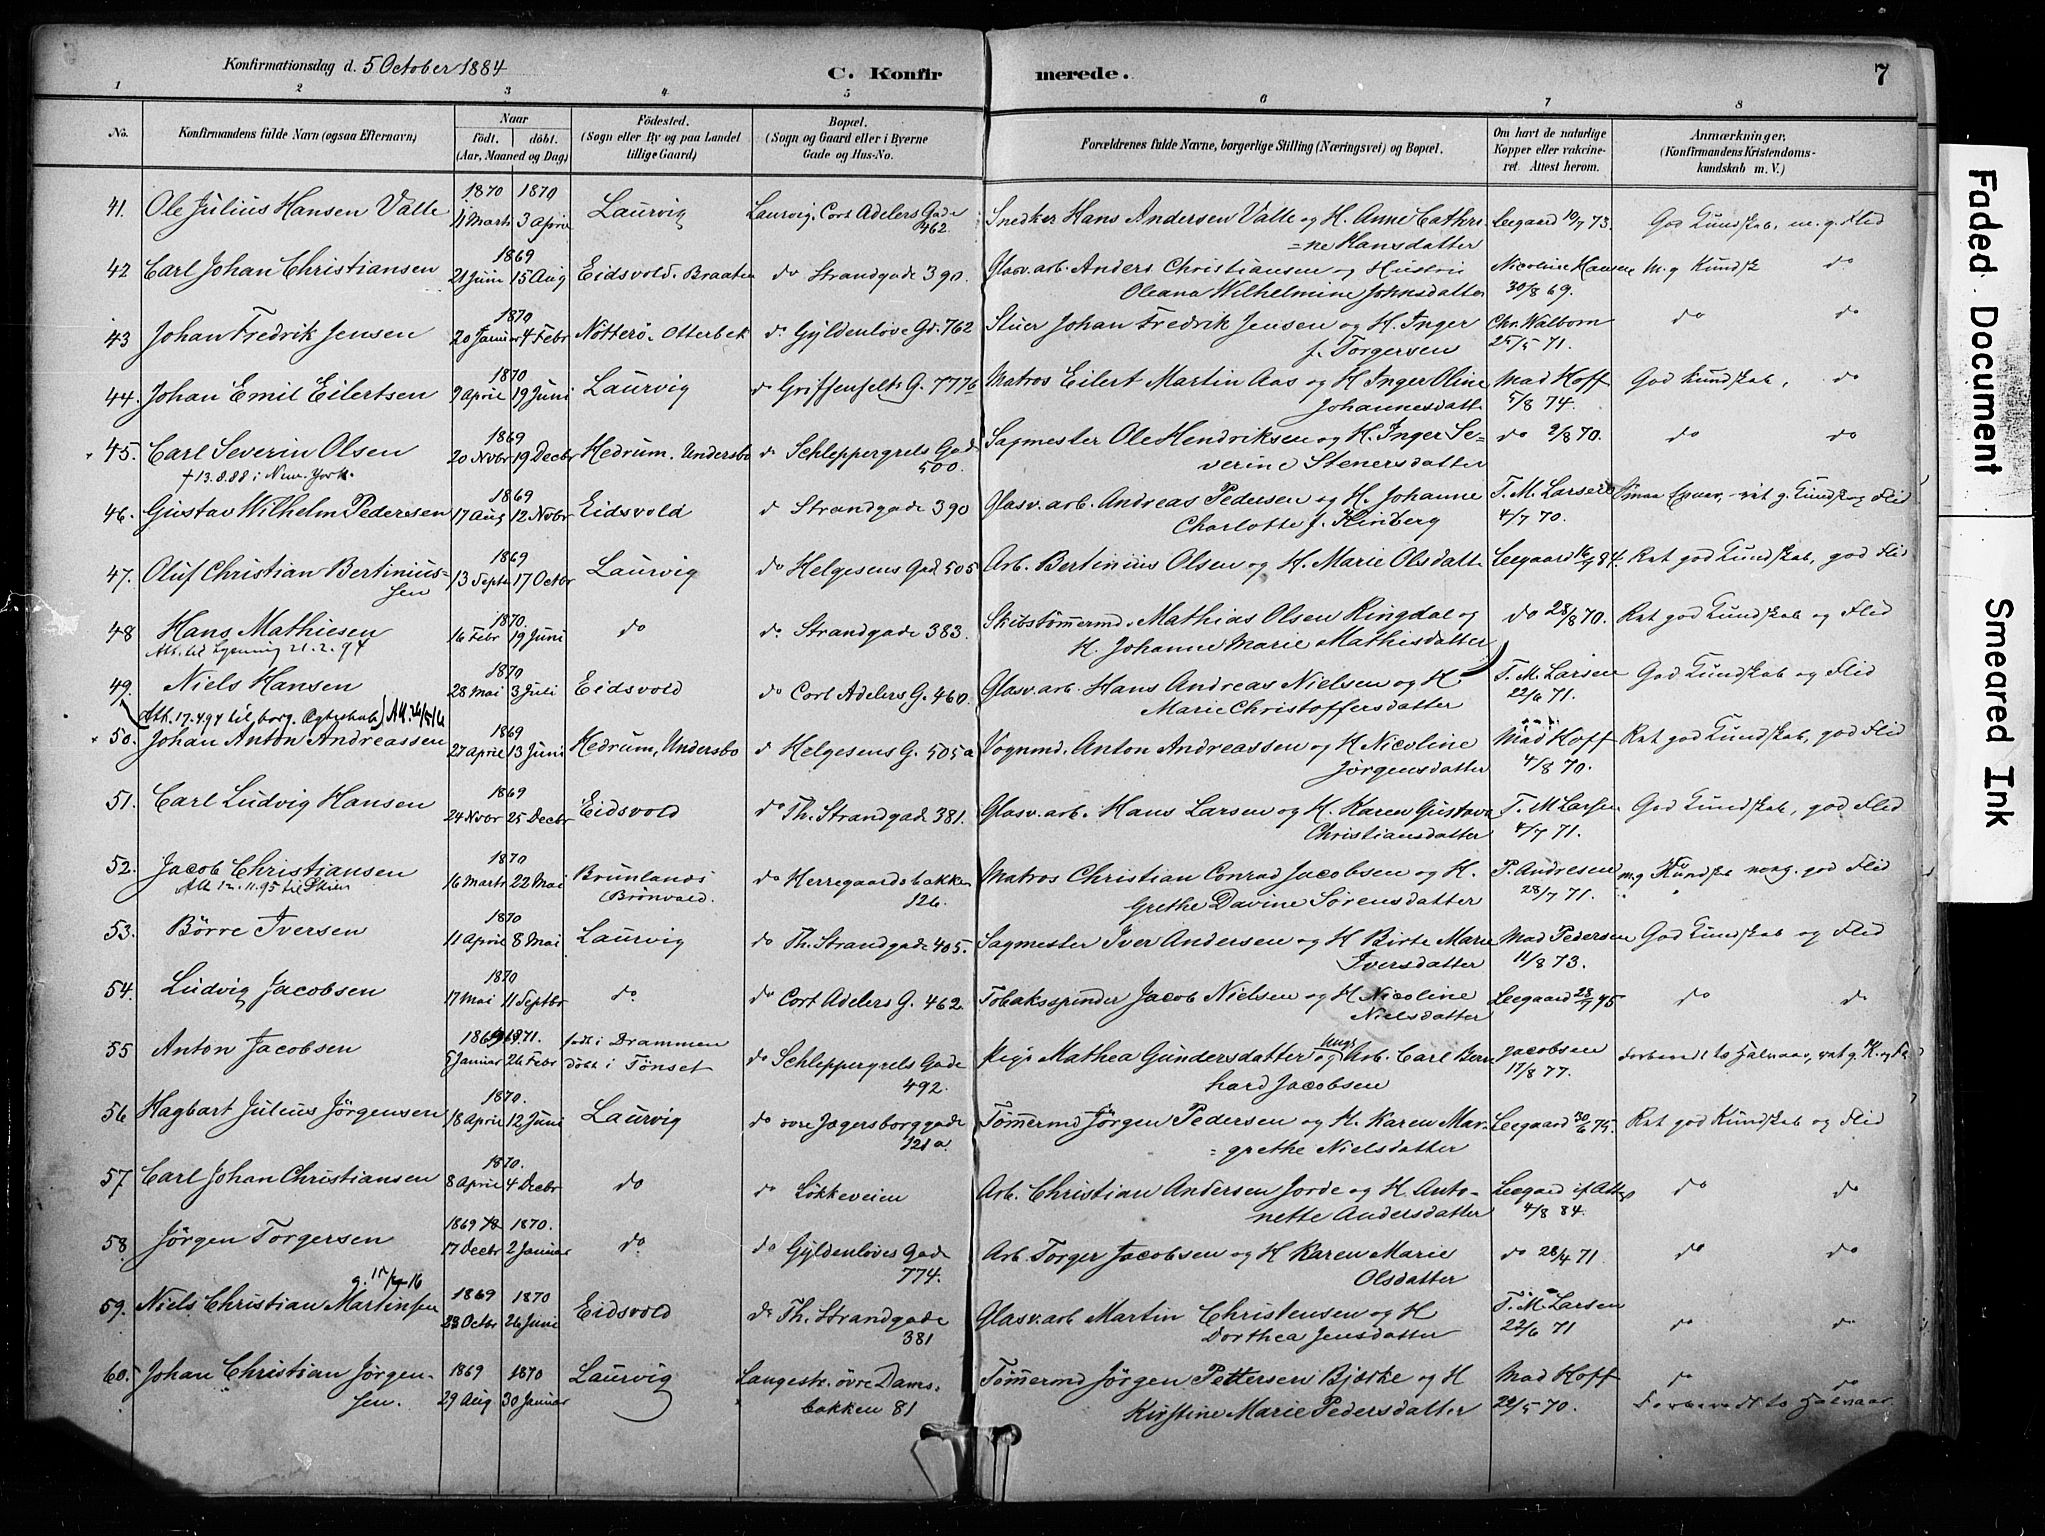 Konfirmationsdag d. 5 October 1884
C. Konfirmerede.
7
1 2 3 4 5 6 7 8
No.
Konfirmandens fulde Navn (ogsaa Efternavn)
Naar
Födt. döbt.
(Aar, Maaned og Dag)
Födested.
(Sogn eller By og paa Landet
tillige Gaard)
Bopæl.
(Sogn og Gaard eller i Byerne
Gade og Hus-No.
Forældrenes fulde Navne, borgerlige Stilling (Næringsvei) og Bopæl.
Om havt de naturlige
Kopper eller vakcine-
ret. Attest herom.
Anmærkninger.
(Konfirmandens Kristendoms-
kundskab m. V.)
1870 1870
41. Ole Julius Hansen Valle 11 Marts 3 April Laurvig Laurvig, Cort Adelers Gade 462. Snedker Hans Andersen Valle og H. Anne Cathri
=ne Hansdatter Leegaard 10/7 73. God Kundskab, m. g. Flid
1869
42 Carl Johan Christiansen 21 Juni 15 Aug Eidsvold. Braaten do Strandgade 390. Glasv. arb. Anders Christiansen og Hustru
Oleana Wilhelmine Johnsdatter Nicoline Hansen
30/8 69. M. g Kundsk do
1870
43 Johan Fredrik Jensen 20 Januar 4 Febr Nötterö. Otterbek do Gyldenløve Gd. 762 Stuer Johan Fredrik Jensen og H. Inger
f. Torgersen Chr. Walborn
25/5 71. do do
1870
44. Johan Emil Eilertsen 9 April 19 Juni Laurvig do Griffenfelts G. 777b Matros Eilert Martin Aas og H Inger Oline
Johannesdatte Mad Hoff
5/8 74. God Kundskab, do
1869
45. Carl Severin Olsen 20 Novbr 19 Decbr Hedrum. Undersbo do Schleppergrels Gad 500. Sagmester Ole Hendriksen og H. Inger Se=
verine Stenersdatter do 9/8 70. do do
+ 13.8.88 i New. York.
1869
46. Gustav Wilhelm Pedersen 17 Aug 12 Novbr Eidsvold do Strandgade 390 Glasv. arb. Andreas Pedersen og H. Johanne
Charlotte f. Hinberg T. M. Larsen
4/7 70. g. Kundsk og Flid
1869
47. Oluf Christian Bertinius=
sen 13 Septr 17 Octbr Laurvig do Helgesens Gad 505 Arb. Bertinius Olsen og H. Marie Olsdatte Leegaard 84. Ret god Kundskab, god Flid
1870.
48 Hans Mathiesen 16 Febr 19 Juni do do Strandgade 383. Skibstömermd. Mathias Olsen Ringdal og
H. Johanne Marie Mathisdatter do 28/8 70. Ret god Kundskab og Flid
Att. til Lysning 21.2.94
1870
49. Niels Hansen 28 Mai 3 Juli Eidsvold do Cort Adelers G. 460. Glasv. arb. Hans Andreas Nielsen og H.
Marie Christoffersdatter T. M. Larsen
22/6 71. God Kundskab og Flid
Att. 17.4.94 til borg. Ægteskab
1869
50. Johan Anton Andreassen 27 April 13 Juni Hedrum, Undersbo do Helgesens G. 505a Vognmd. Anton Andreassen og H Nicoline
Jørgensdatter Mad Hoff
4/8 70. Ret god Kundskab, god Flid
1869
51. Carl Ludvig Hansen 24 Novbr 25 Decbr Eidsvold do Th. Strandgade 381. Glasv. arb. Hans Larsen og H. Karen Gustava
Christiansdatter T. M Larsen
4/7 71. God Kundskab, god Flid
1870
52. Jacob Christiansen 16 Marts 22 Mai Brunlands
Brönvald. do Herregaardsbakken 126. Matros Christian Conrad Jacobsen og H.
Grethe Davine Sørensdatter P. Andresen
28/7 71. m. g Kundskab god Flid
Att 12.11.95 til Skien
1870
53. Börre Iversen 11 April 8 Mai Laurvig do Th. Strandgade 405. Sagmester Iver Andersen og H Birte Marie
Iversdatter Mad Pedersen
11/8 73. God Kundskab og Flid
1870
54. Ludvig Jacobsen 17 Mai 11 Septbr do do Cort Adelers G. 462 Tobaksspinder Jacob Nielsen og H Nicoline
Nielsdatter Leegaard 75 do do
1871.
55 Anton Jacobsen 5 Januar 26 Febr født i Drammen
døbt i Tønset do Schleppergrels Gade 492. Pige Mathea Gundersdatter og Arb. Carl Bern
hard Jacobsen Jacobsen
17/8 77.
1870.
56 Hagbart Julius Jörgensen 18 April 12 Juni Laurvig do øvre Jægersborggade 121a. Tømermd Jörgen Pedersen og H. Karen Mar=
=grethe Nielsdatter Leegaard 30/6 75. Ret god Kundskab og Flid
1870.
57 Carl Johan Christiansen 8 April 4 Decbr do do Løkkeveien Arb. Christian Andersen Jorde og H. Anto=
nette Andersdatter Leegaard if Attes
4/8 84. do do
1869 1870.
58. Jörgen Torgersen 17 Decbr 2 Januar do do Gyldenløves Gade 774. Arb. Torger Jacobsen og H Karen Marie
Olsdatter do 28/4 71 do do
1869 1870
59. Niels Christian Martinsen 23 Octbr 26 Juni Eidsvold do Th. Strandgade 381 Glasv. arb Martin Christensen og H
Dorthea Jensdatter T. M. Larsen
22/6 71 do do
1869 1870
60. Johan Christian Jørgen=
sen. 29 Aug 30 Januar Laurvig Langestr. övre Dams=
bakken 81 Tømermd Jörgen Pettersen Bjerke og H
Kirstine Marie Pedersdatter Mad Hoff
22/5 70. do do
Forberedt to Halvaar.
Faded Document
Smeared Ink